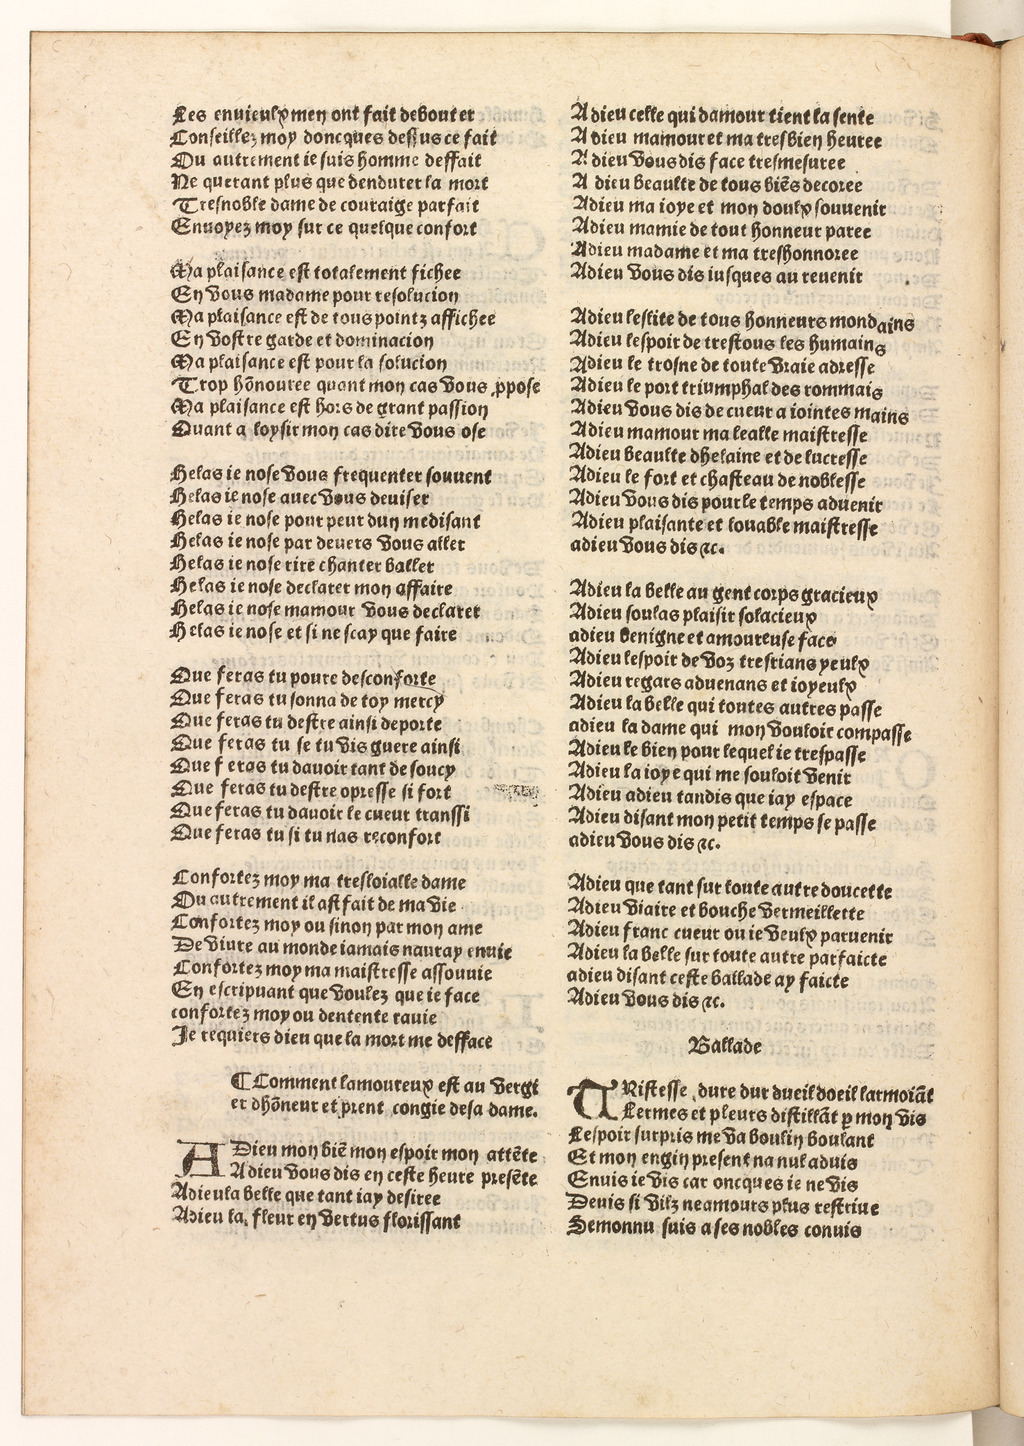 Les enuieulx men ont fait debouter
Conseillez moy doncques dessus ce fait
Ou autrement ie suis homme deffait
Ne querant plus que dendurer la mort
Tresnoble dame de couraige parfait
Enuoyez moy sur ce quelque confort
Ma plaisance est totalement fichee
En vous madame pour resolucion
Ma plaisance est de tous pointz affichee
En vostre garde et dominacion
Ma plaisance est pour la solucion
Trop hõnouree quant mon cas vous ꝓpose
Ma plaisance est hors de grant passion
Quant a loysir mon cas dire vous ose
Helas ie nose vous frequenter souuent
Helas ie nose auec vous deuiser
Helas ie nose pour peur dun medisant
Helas ie nose par deuers vous aller
Helas ie nose rire chanter baller
Helas ie nose declarer mon affaire
Helas ie nose mamour vous declarer
Helas ie nose et si ne scay que faire
Que feras tu poure desconforte
Que feras tu sonna de toy mercy
Que feras tu destre ainsi deporte
Que feras tu se tu vis guere ainsi
Que feras tu dauoir tant de soucy
Que feras tu destre opresse si fort
Que feras tu dauoir le cueur transsi
Que feras tu si tu nas reconfort
Confortez moy ma tresloialle dame
Ou autrement il ast fait de ma vie
Confortez moy ou sinon par mon ame
De viure au monde iamais nauray enuie
Confortez moy ma maistresse assouuie
En escripuant que voulez que ie face
confortez moy ou dentente rauie
Je requiers dieu que la mort me defface
¶ Comment lamoureux est au vergi
er dhõneur et prent congie de sa dame.
ADieu mon biẽ mon espoir mon attẽte
Adieu vous dis en ceste heure presẽte
Adieu la belle que tant iay desiree
Adieu la fleur en vertus florissant
Adieu celle qui damour tient la sente
Adieu mamour et ma tresbien heuree
Adieu vous dis face tresmesuree
Adieu beaulte de tous biẽs decoree
Adieu ma ioye et mon doulx souuenir
Adieu mamie de tout honneur paree
Adieu madame et ma treshonnoree
Adieu vous dis iusques au reuenir
Adieu leslite de tous honneurs mondains
Adieu lespoir de trestous les humains
Adieu le trosne de toute vraie adresse
Adieu le port triumphal des rommais
Adieu vous dis de cueur a iointes mains
Adieu mamour ma lealle maistresse
Adieu beaulte dhelaine et de lucresse
Adieu le fort et chasteau de noblesse
Adieu vous dis pour le temps aduenir
Adieu plaisante et louable maistresse
adieu vous dis ⁊c.
Adieu la belle au gent corps gracieux
Adieu soulas plaisir solacieux
adieu benigne et amoureuse face
Adieu lespoir de voz tresrians yeulx
Adieu regars aduenans et ioyeulx
Adieu la belle qui toutes autres passe
adieu la dame qui mon vouloir compasse
Adieu le bien pour lequel ie trespasse
Adieu la ioye qui me souloit venir
Adieu adieu tandis que iay espace
Adieu disant mon petit temps se passe
adieu vous dis ⁊c.
Adieu que tant sur toute autre doucette
Adieu viaire et bouche vermeillette
Adieu franc cueur ou ie veulx paruenir
Adieu la belle sur toute autre parfaicte
adieu disant ceste ballade ay faicte
Adieu vous dis ⁊c.
Ballade
TRistesse dure dur dueil doeil larmoiãt
Lermes et pleurs distillãt ꝑ mon vis
Lespoir surpris me va boulin boulant
Et mon engin present na nul aduis
Enuis ie vis car oncques ie ne vis
Deuis si vilz neamours plus restriue
Semonnu suis a ses nobles conuis